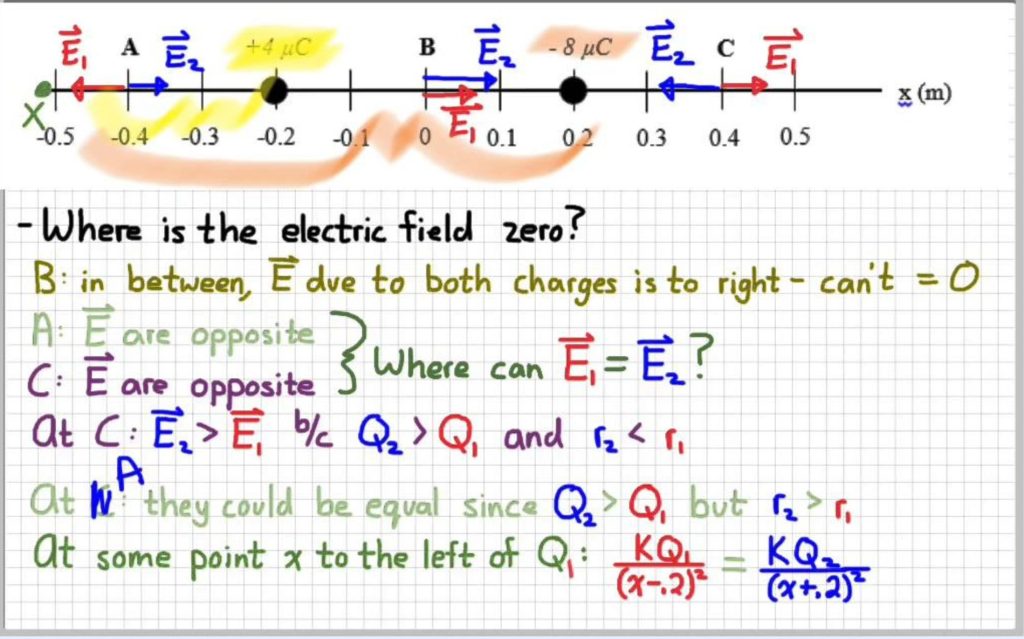 E₁ A E₂ +4 μC B E₂ - 8 μC E₂ C E₁
x (m)
X E₁
-0.5 -0.4 -0.3 -0.2 -0.1 0 0.1 0.2 0.3 0.4 0.5
- Where is the electric field zero?
B: in between, E due to both charges is to right - can't = 0
A: E are opposite
C: E are opposite } Where can E₁ = E₂?
At C: E₂ > E₁ b/c Q₂ > Q₁ and r₂ < r₁
At A: they could be equal since Q₂ > Q₁ but r₂ > r₁
At some point x to the left of Q₁: KQ₁/(x-.2)² = KQ₂/(x+.2)²